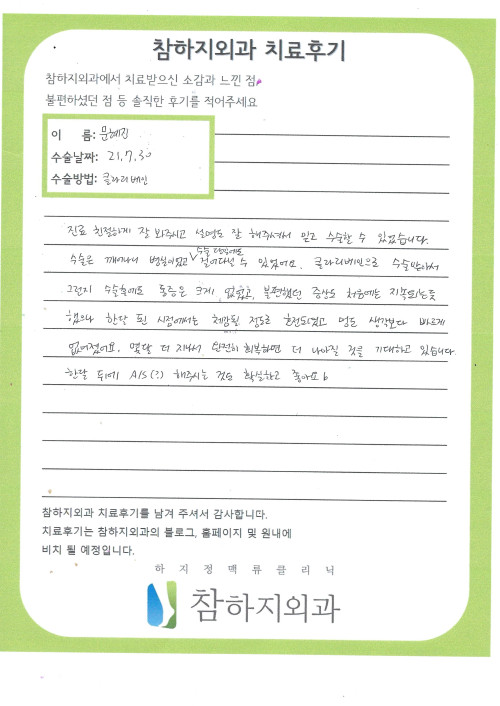 참하지외과 치료후기
참하지외과에서 치료받으신 소감과 느낀 점,
불편하셨던 점 등 솔직한 후기를 적어주세요
이 름: 문혜진
수술날짜: 21.7.30
수술방법: 클라리베인
진료 친절하게 잘 봐주시고 설명도 잘 해주셔서 믿고 수술할 수 있었습니다.
수술은 깨어나서 병실이었고 수술 당일에도 걸어다닐 수 있었어요. 클라리베인으로 수술받아서
그런지 수술후에도 통증은 크게 없었고, 불편했던 증상도 처음에는 지속되는듯
했으나 한달 된 시점에서는 체감될 정도로 호전되었고 멍도 생각보다 빠르게
없어졌어요. 몇달 더 지나서 완전히 회복하면 더 나아질 것을 기대하고 있습니다.
한달 뒤에 A/S(?) 해주시는 것도 확실하고 좋아요
참하지외과 치료후기를 남겨 주셔서 감사합니다.
치료후기는 참하지외과의 블로그, 홈페이지 및 원내에
비치 될 예정입니다.
하지정맥류클리닉
참하지외과